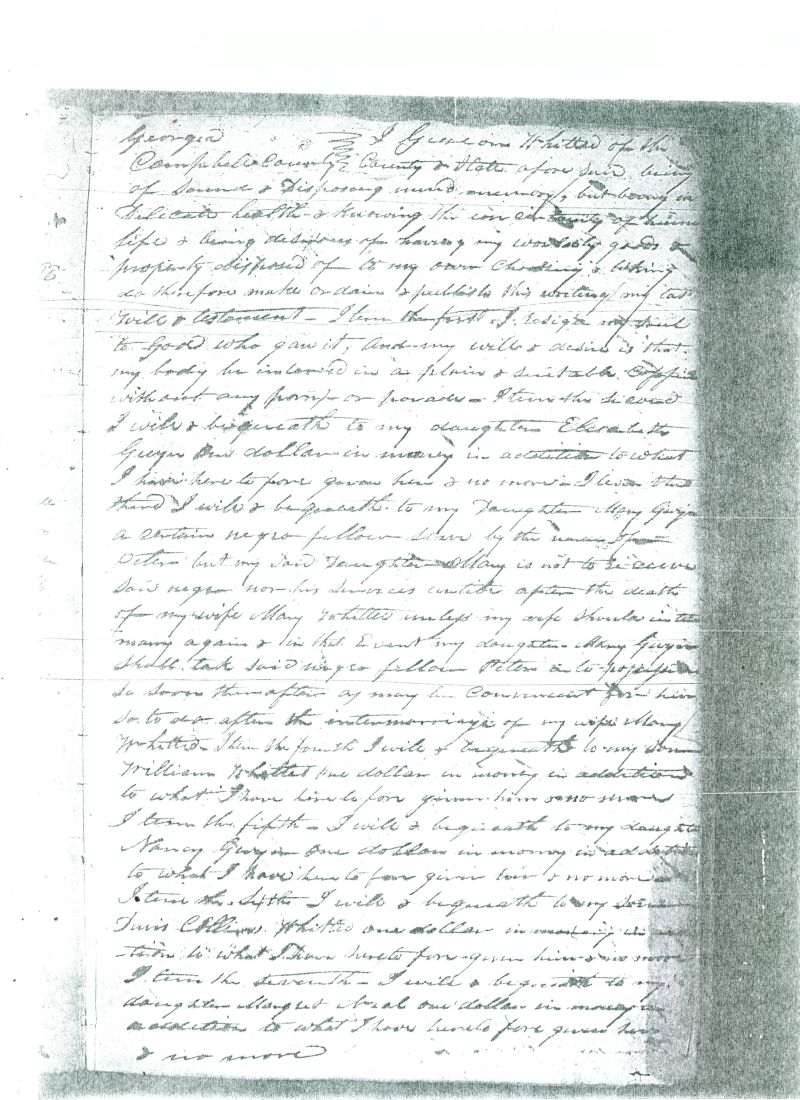 Georgia I Whitted of the
Campbell County County & State afore said being
of Sound & Disposing mind memory, but being in
delicate health & Knowing the uncertainty of human
life & being desirous of having my worldly goods &
property disposed of to my own choosing & liking
do therefore make ordain & publish this writing my last
Will & testament - Item the first I resign my soul
to God who gave it, and my will & desire is that
my body be intered in a plain & suitable Coffin
without any pomp or parade - Item the second
I will & bequeath to my daughter Elizabeth
Guyn one dollar in money in addition to what
I have here to fore given her & no more - Item the
third I will & bequeath to my Daughter Mary Guyn
a certain negro fellow slave by the name
Peter but my said Daughter Mary is not to receive
said negro nor his services untill after the death
of my wife Mary Whitted unless my wife should inter
marry again & in that Event my daughter Mary Guyn
shall take said negro fellow Peter in to possession
so soon thereafter as may be Convenient for him
so to do after the intermarriage of my wife Mary
Whitted - Item the fourth I will & bequeath to my son
William Whitted one dollar in money in addition
to what I have here to fore given him & no more
Item the fifth - I will & bequeath to my daughter
Nancy Guyn one dollar in money in addition
to what I have here to fore given & no more
Item the Sixth I will & bequeath to my son
Collins Whitted one dollar in money in
-tion to what I have hereto fore given him & no more
Item the seventh - I will & bequeath to my
daughter Margret Neal one dollar in money in
addition to what I have hereto fore given her
& no more